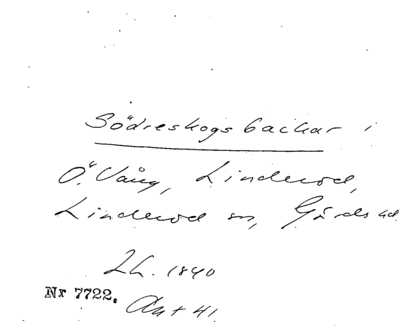 Södreskogsbackar i
Ö. Vång, Linderod,
Linderod sn, Gärds hd
Lh. 1840
Nr 7722.
Ant 41